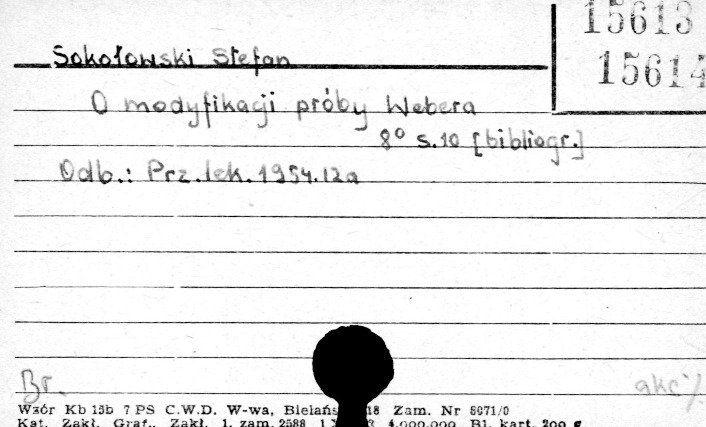 15613
15614
Sokołowski Stefan
O modyfikacji próby Webera
8° s.10 [bibliogr.]
Odb.: Prz.lek.1954.12a
Br.
akc%
Wzór Kb 13b 7 PS C.W.D. W-wa, Bielańs 18 Zam. Nr 8671/0
Kat. Zakł. Graf., Zakł. 1. zam. 2588 4.000.000 Bl. kart. 200 g